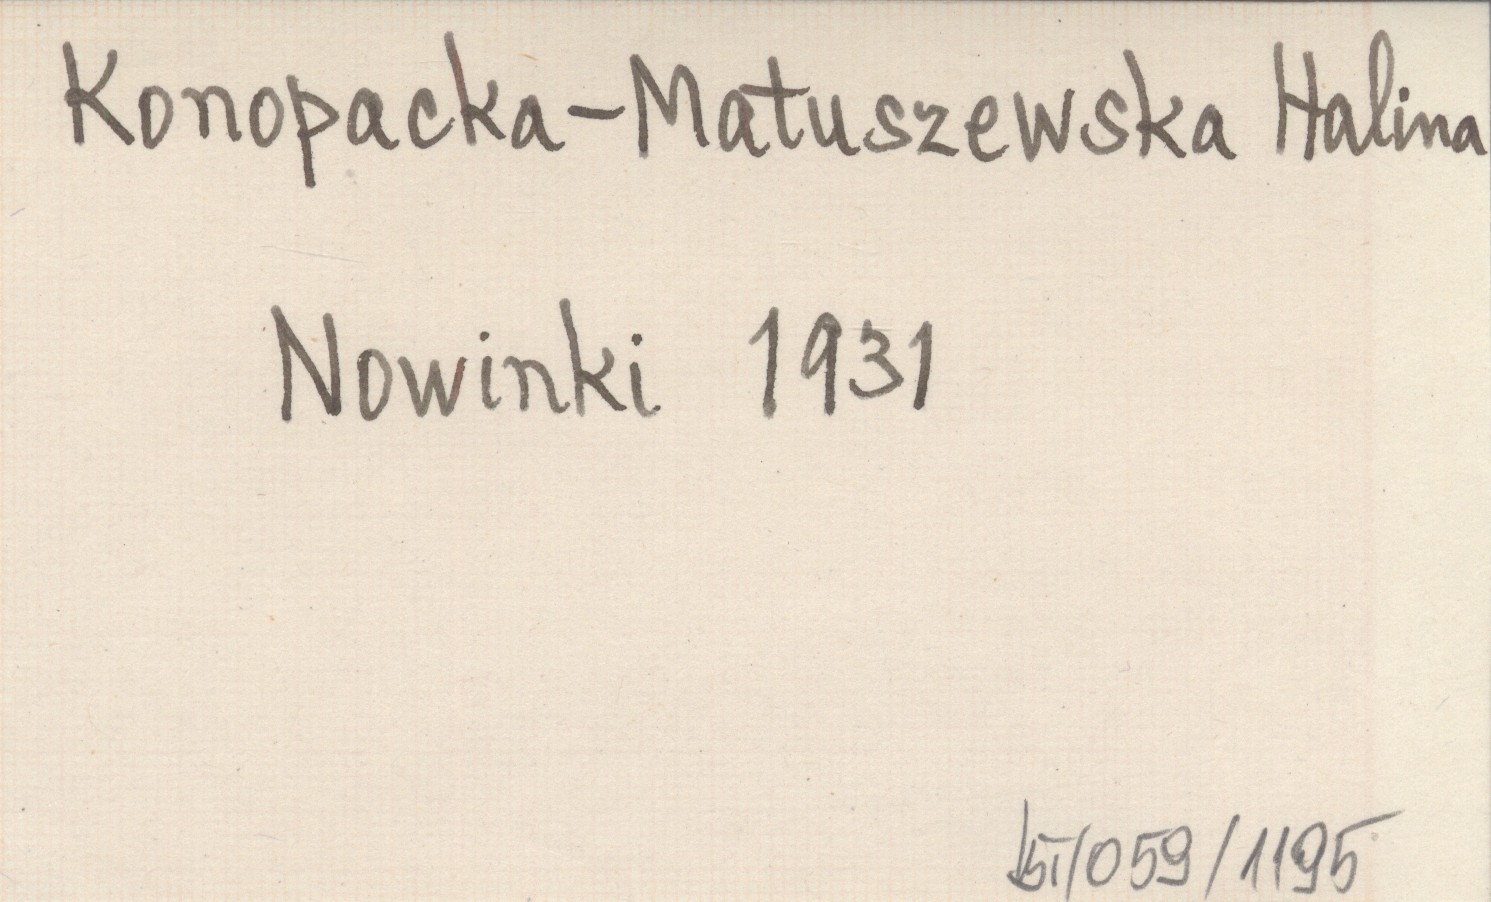 Konopacka-Matuszewska Halina
Nowinki 1931
/059/1195